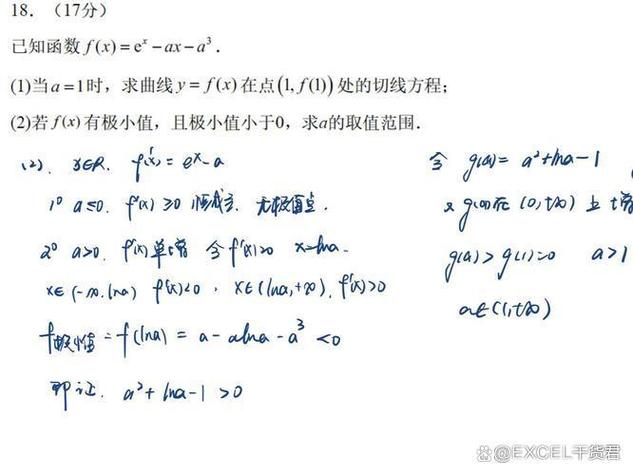 18. （17分）
已知函数 f(x) = eˣ − ax − a³．
(1)当 a = 1 时，求曲线 y = f(x) 在点 (1, f(1)) 处的切线方程；
(2)若 f(x) 有极小值，且极小值小于0，求a的取值范围．
(2). x∈R. f'(x) = eˣ - a
1° a≤0. f'(x) ≥0 恒成立. 无极值点.
2° a>0. f'(x)单增 令f'(x)=0 x=lna.
x∈(-∞.lna) f'(x)<0 , x∈(lna,+∞). f'(x)>0
f极小值 = f(lna) = a - alna - a³ <0
即证. a²+lna-1 >0
令 g(a) = a²+lna-1
又 g(a)在(0,+∞)上↑增
g(a) > g(1)=0 a>1
a∈(1,+∞)
@EXCEL干货君